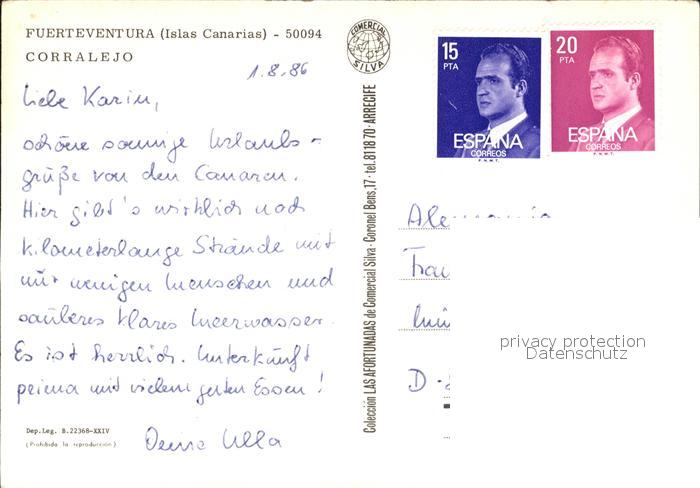 FUERTEVENTURA (Islas Canarias) - 50094
CORRALEJO
1.8.86
Liebe Karin,
schöne sonnige Urlaubs-
grüße von den Canaren.
Hier gibt's wirklich noch
kilometerlange Strände mit
nur wenigen Menschen und
sauberes klares Meerwasser.
Es ist herrlich. Unterkunft
prima mit vielem guten Essen!
Deine Ulla
Dep.Leg. B.22368-XXIV
(Prohibida la reproducción)
COMERCIAL
SILVA
Colección LAS AFORTUNADAS de Comercial Silva · Coronel Bens, 17 · tel. 81 18 70 · ARRECIFE
15
PTA
ESPAÑA
CORREOS
F.N.M.T.
20
PTA
ESPAÑA
CORREOS
F.N.M.T.
privacy protection
Datenschutz
D-